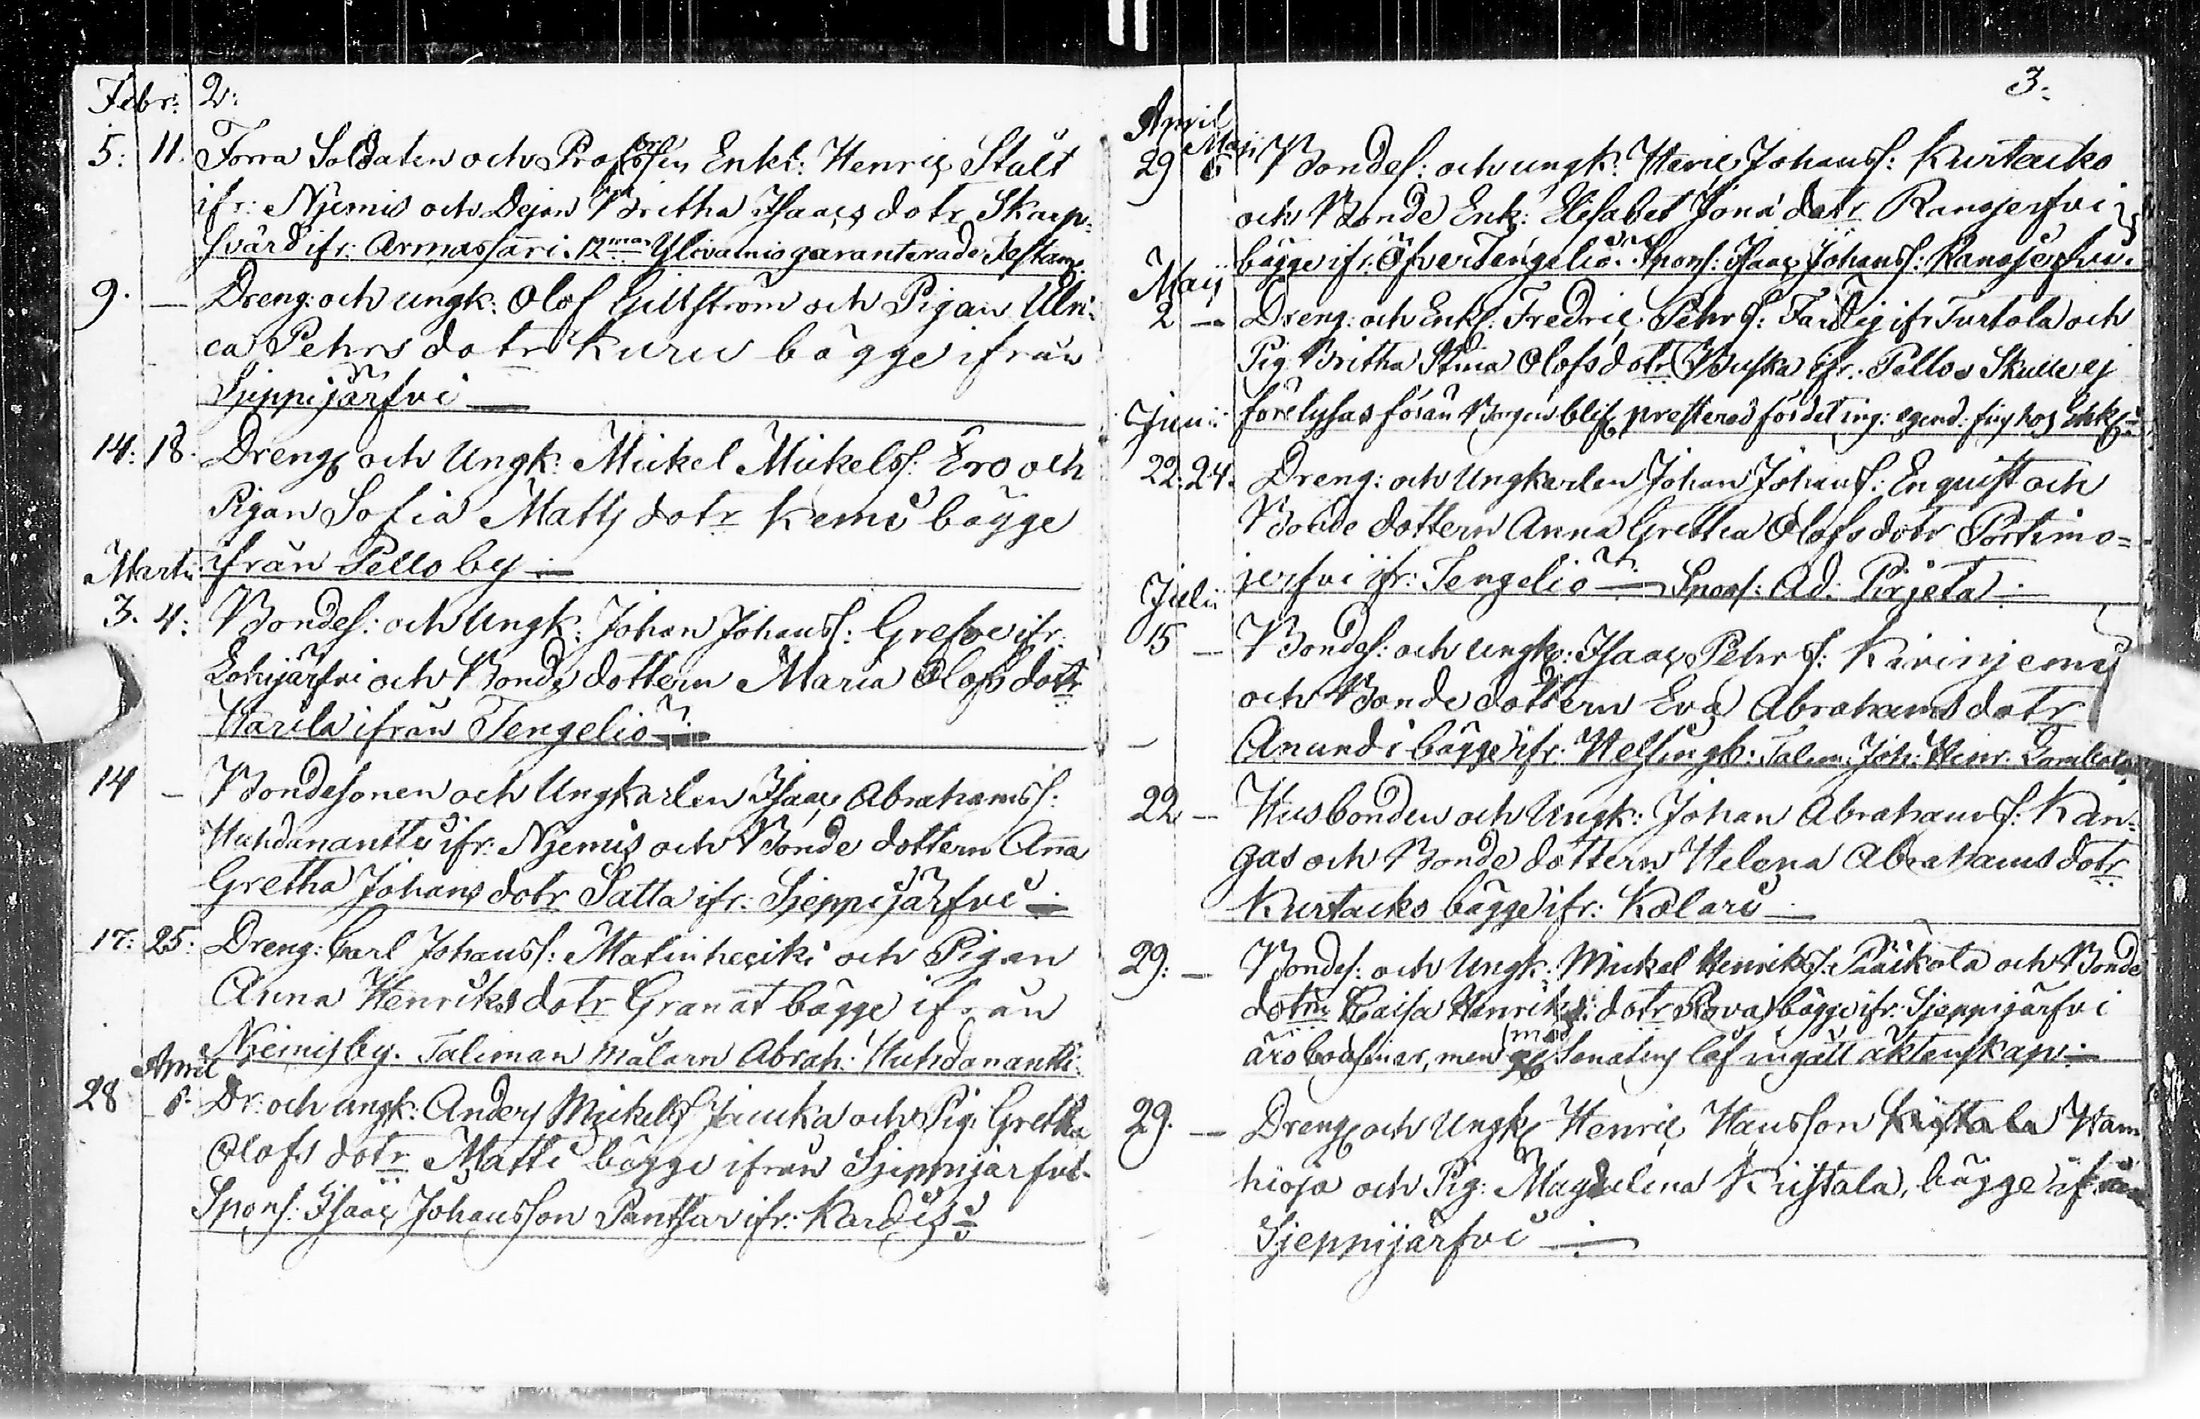 Febr: 2:
5: 11. Forra Soldaten och Enkl: Henric Stålt
ifr: Njemis och Dejan Britha Isaacs dotr Skarp-
svärd ifr: Armassari. 12 mar Ylivainio garanterade Testam:
9. — Dreng: och ungk: Olof Gillström och Pigan Ulri-
ca Pehrs dotr Kuru bägge ifrån
Sjeppijärfvi —
14: 18. Dreng och Ungk: Mickel Mickelss: Ero och
Pigan Sofia Matts dotr Kemi bägge
ifrån Pello by —
Martii
3. 4: Bondes: och Ungk: Johan Johanss: Grefve ifr:
Lohijärfvi och Bonde dottern Maria Olofs dotr
Harila ifrån Tengeliö —
14 — Bondesonen och Ungkarlen Isaac Abrahamss:
Huhdanantti ifr: Njemis och Bonde dottern Anna
Gretha Johans dotr Satta ifr: Sjeppijärfvi —
17: 25: Dreng: Carl Johanss: Matinheiki och Pigan
Anna Henriks dotr Granat bägge ifrån
Niemis by. Taleman målarn Abrah: Huhdanantti:
April
28 8. Dr: och ungk: Anders Mickelss Jauka och Pig: Gretha
Olofs dotr Matti bägge ifrån Sjeppijärfvi.
Spons: Isaac Johansson Panthar ifr: Kardis

3.
April Maji
29 6 Bondes: och ungk: Heric Johanss: Kurtacko
och Bonde Enk: Elisabet Jona dotr Ranojerfvi
bägge ifr: Öfver Tengeliö. Spons: Isaac Johanss: Ranojerfvi.
Maij
2 — Dreng: och Enkl: Fredric Pehrs: Fardig ifr Turtola och
Pig Britha Stina Olofs dotr Buska ifr: Pello. Skulle ej
Junii förelysas förän Borgen blif presterad för det ing: egend: fins hos Enkl:
22. 24. Dreng: och Ungkarlen Johan Johanss: Enquist och
Bonde dottern Anna Gretha Olofs dotr Portimo=
jerfvi ifr: Tengeliö — Spons: Ad: Pirjeta —
Julii
15 — Bondes: och ungk: Isaac Pehrs: Kirinjemi
och Bonde dottern Eva Abrahams dotr
Anundi bägge ifr: Helsingb: Talem: Joh: Henr:
22 — Husbonden och Ungk: Johan Abrahams: Kan-
gas och Bonde dottern Helena Abrahams dotr
Kurtacko bägge ifr: Kolari —
29: — Bondes: och Ungk: Mickel Henriks: Pääkola och Bonde
dotrn Caisa Henriks dotr Rova bägge ifr: Sjeppijärfvi
äro men med Senatens lof ingått äktenskap —
29. — Dreng och Ungk Henric Hansson Kistala Ham
hioja och Pig: Magdalena Kristala, bägge ifrån
Sjeppijärfvi —